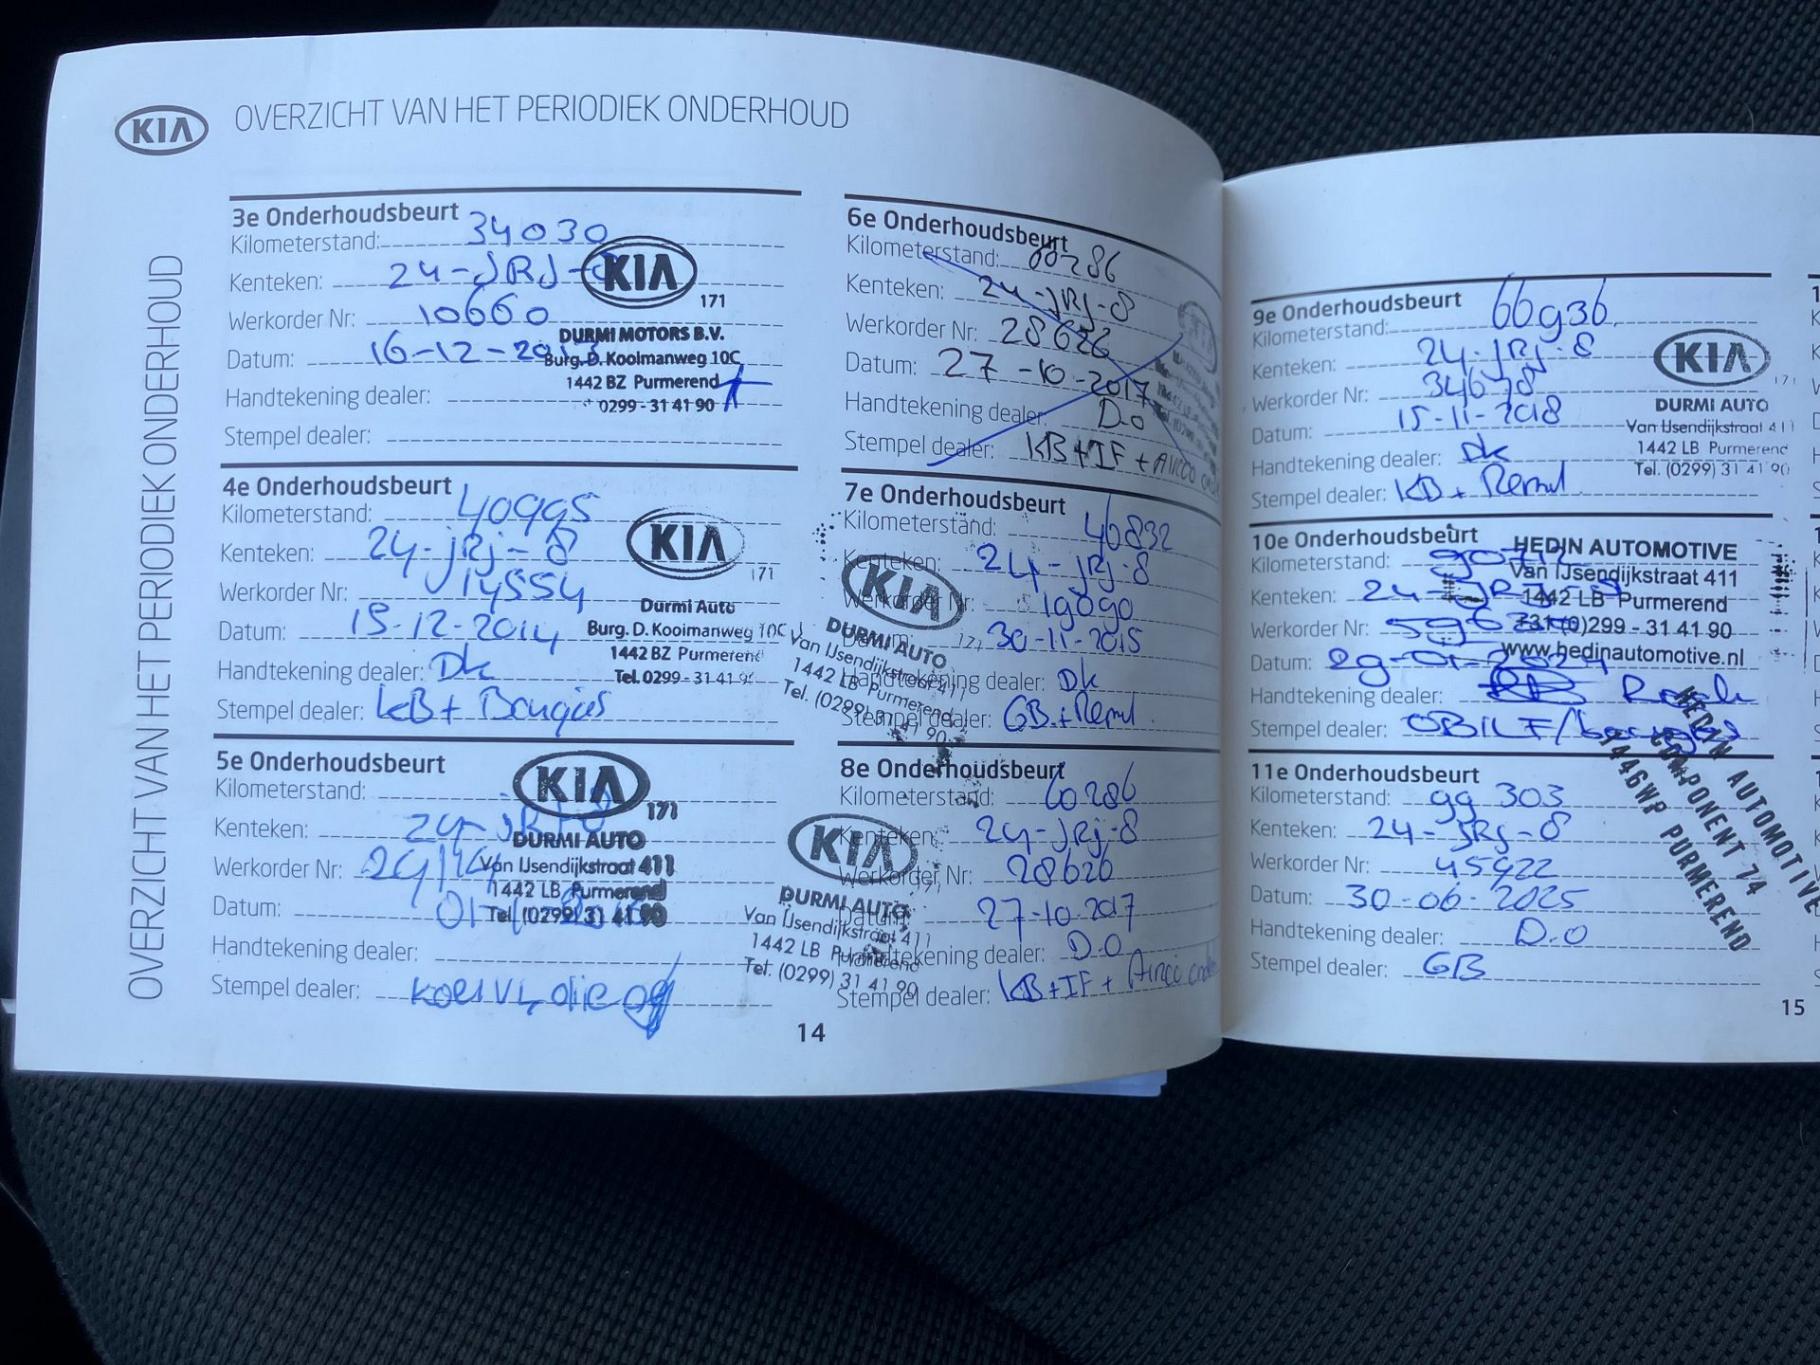 KIA OVERZICHT VAN HET PERIODIEK ONDERHOUD
OVERZICHT VAN HET PERIODIEK ONDERHOUD
3e Onderhoudsbeurt
Kilometerstand: 34030
Kenteken: 24-JRJ-
Werkorder Nr: 10660
Datum: 16-12-2013
Handtekening dealer:
Stempel dealer:
KIA
171
DURMI MOTORS B.V.
Burg. D. Kooimanweg 10C
1442 BZ Purmerend
0299 - 31 41 90
4e Onderhoudsbeurt
Kilometerstand: 40995
Kenteken: 24-JRJ-8
Werkorder Nr: 14554
Datum: 15-12-2014
Handtekening dealer: Dk
Stempel dealer: KB + Bougies
KIA
171
Durmi Auto
Burg. D. Kooimanweg 10C
1442 BZ Purmerend
Tel. 0299 - 31 41 90
5e Onderhoudsbeurt
Kilometerstand:
Kenteken: 24-JRJ-8
Werkorder Nr:
Datum:
Handtekening dealer:
Stempel dealer:
KIA
171
DURMI AUTO
Van IJsendijkstraat 411
1442 LB Purmerend
Tel. (0299) 31 41 90
6e Onderhoudsbeurt
Kilometerstand: 60286
Kenteken: 24-JRJ-8
Werkorder Nr: 28626
Datum: 27-10-2017
Handtekening dealer: D.O
Stempel dealer: KB+IF + Airco
7e Onderhoudsbeurt
Kilometerstand: 46832
Kenteken: 24-JRJ-8
Werkorder Nr: 19090
Datum: 30-11-2015
Handtekening dealer: Dk
Stempel dealer: GB + Remvl.
KIA
171
DURMI AUTO
Van IJsendijkstraat 411
1442 LB Purmerend
Tel. (0299) 31 41 90
8e Onderhoudsbeurt
Kilometerstand: 60286
Kenteken: 24-JRJ-8
Werkorder Nr: 28626
Datum: 27-10-2017
Handtekening dealer: D.O
Stempel dealer: KB+IF + Airco
KIA
DURMI AUTO
Van IJsendijkstraat 411
1442 LB Purmerend
Tel. (0299) 31 41 90
14
9e Onderhoudsbeurt
Kilometerstand: 66936
Kenteken: 24-JRJ-8
Werkorder Nr: 34678
Datum: 15-11-2018
Handtekening dealer: Dk
Stempel dealer: KB + Remvl
KIA
171
DURMI AUTO
Van IJsendijkstraat 411
1442 LB Purmerend
Tel. (0299) 31 41 90
10e Onderhoudsbeurt
Kilometerstand:
Kenteken: 24-JRJ-8
Werkorder Nr:
Datum: 29-01-2024
Handtekening dealer:
Stempel dealer:
HEDIN AUTOMOTIVE
Van IJsendijkstraat 411
1442 LB Purmerend
+31 (0)299 - 31 41 90
www.hedinautomotive.nl
11e Onderhoudsbeurt
Kilometerstand: 99 303
Kenteken: 24-JRJ-8
Werkorder Nr: 45922
Datum: 30-06-2025
Handtekening dealer: D.O
Stempel dealer: GB
HEDIN AUTOMOTIVE
COMPONENT 74
1446WP PURMEREND
15